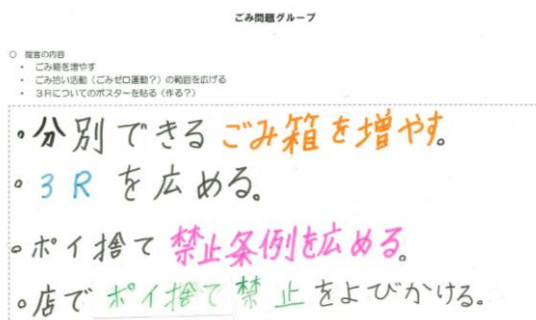 ごみ問題グループ
○ 提言の内容
・ ごみ箱を増やす
・ ごみ拾い活動（ごみゼロ運動？）の範囲を広げる
・ 3Rについてのポスターを貼る（作る？）
・分別できるごみ箱を増やす。
・3Rを広める。
・ポイ捨て禁止条例を広める。
・店でポイ捨て禁止をよびかける。